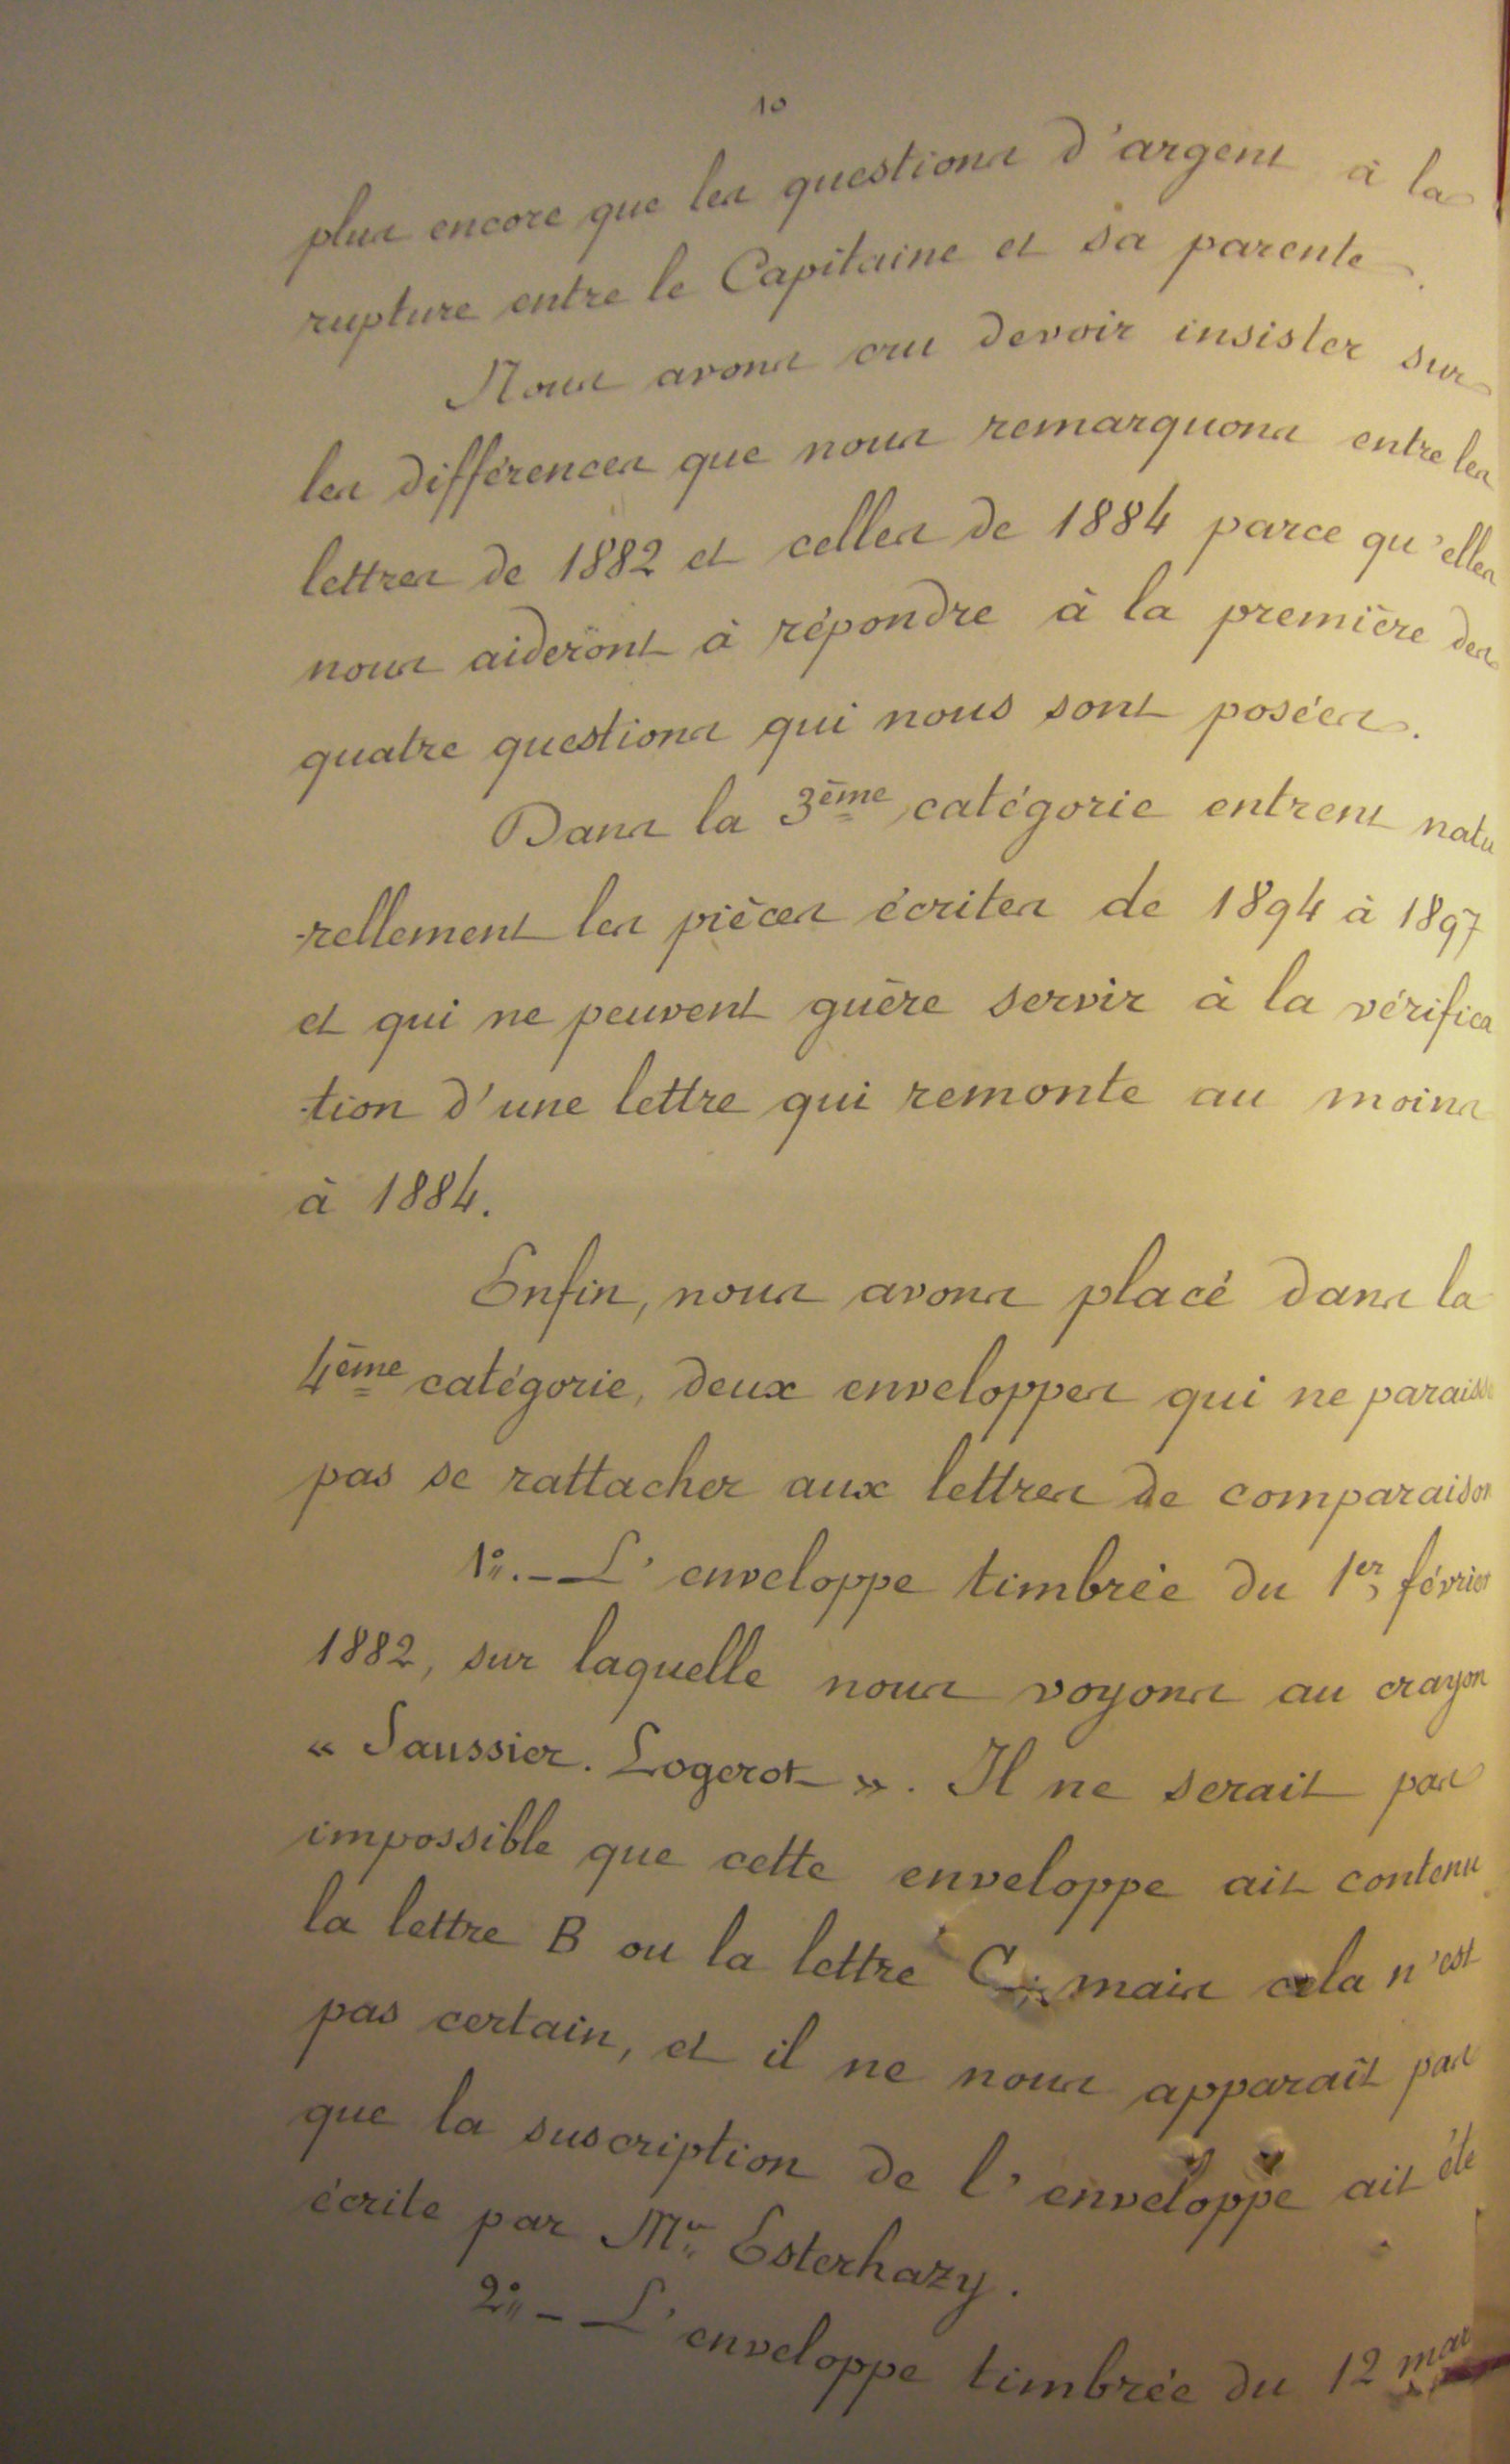 10
plus encore que les questions d'argent à la
rupture entre le Capitaine et sa parente.
Nous avons cru devoir insister sur
les différences que nous remarquons entre les
lettres de 1882 et celles de 1884 parce qu'elles
nous aideront à répondre à la première des
quatre questions qui nous sont posées.
Dans la 3ème catégorie entrent natu
-rellement les pièces écrites de 1894 à 1897
et qui ne peuvent guère servir à la vérifica
-tion d'une lettre qui remonte au moins
à 1884.
Enfin, nous avons placé dans la
4ème catégorie, deux enveloppes qui ne paraisse
pas se rattacher aux lettres de comparaison
1º. - L'enveloppe timbrée du 1er février
1882, sur laquelle nous voyons au crayon
« Saussier. Logerot ». Il ne serait pas
impossible que cette enveloppe ait contenu
la lettre B ou la lettre C; mais cela n'est
pas certain, et il ne nous apparaît pas
que la suscription de l'enveloppe ait été
écrite par Mr Esterhazy.
2º - L'enveloppe timbrée du 12 mar